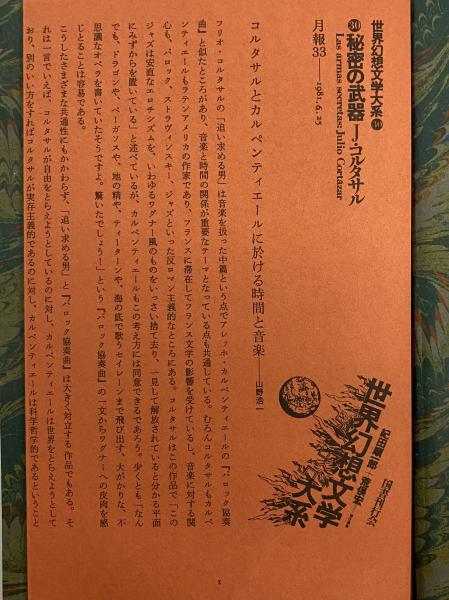 世界幻想文学大系 30
30 秘密の武器 J・コルタサル
Las armas secretas:Julio Cortázar
月報33——1981.6.25
世界幻想文学大系
紀田順一郎 荒俣宏
国書刊行会
コルタサルとカルペンティエールに於ける時間と音楽——山野浩一
フリオ・コルタサルの「追い求める男」は音楽を扱った中篇という点でアレッホ・カルペンティエールの『バロック協奏
曲』と似たところがあり、音楽と時間の関係が重要なテーマとなっている点も共通している。むろんコルタサルもカルペ
ンティエールもラテンアメリカの作家であり、フランスに滞在してフランス文学の影響を受けているし、音楽に対する関
心も、バロック、ストラヴィンスキー、ジャズといった反ロマン主義的なところにある。コルタサルはこの作品で「この
ジャズは安直なエロチシズムを、いわゆるワグナー風のものをいっさい捨て去り、一見して解放されていると分かる平面
にみずからを置いている」と述べているが、カルペンティエールもこの考え方には同意できるであろう。少くとも「なん
でも、ドラゴンや、ペーガソスや、地の精や、ティーターンや、海の底で歌うセイレーンまで飛び出す、大がかりな、不
思議なオペラを書いていたそうですよ。驚いたでしょう！」という『バロック協奏曲』の一文からワグナーへの皮肉を感
じとることは容易である。
こうしたさまざまな共通性にもかかわらず、「追い求める男」と『バロック協奏曲』は大きく対立する作品でもある。そ
れは一言でいえば、コルタサルが自由をとらえようとしているのに対し、カルペンティエールは世界をとらえようとして
おり、別のいい方をすればコルタサルが実存主義的であるのに対し、カルペンティエールは科学哲学的であるということ
1